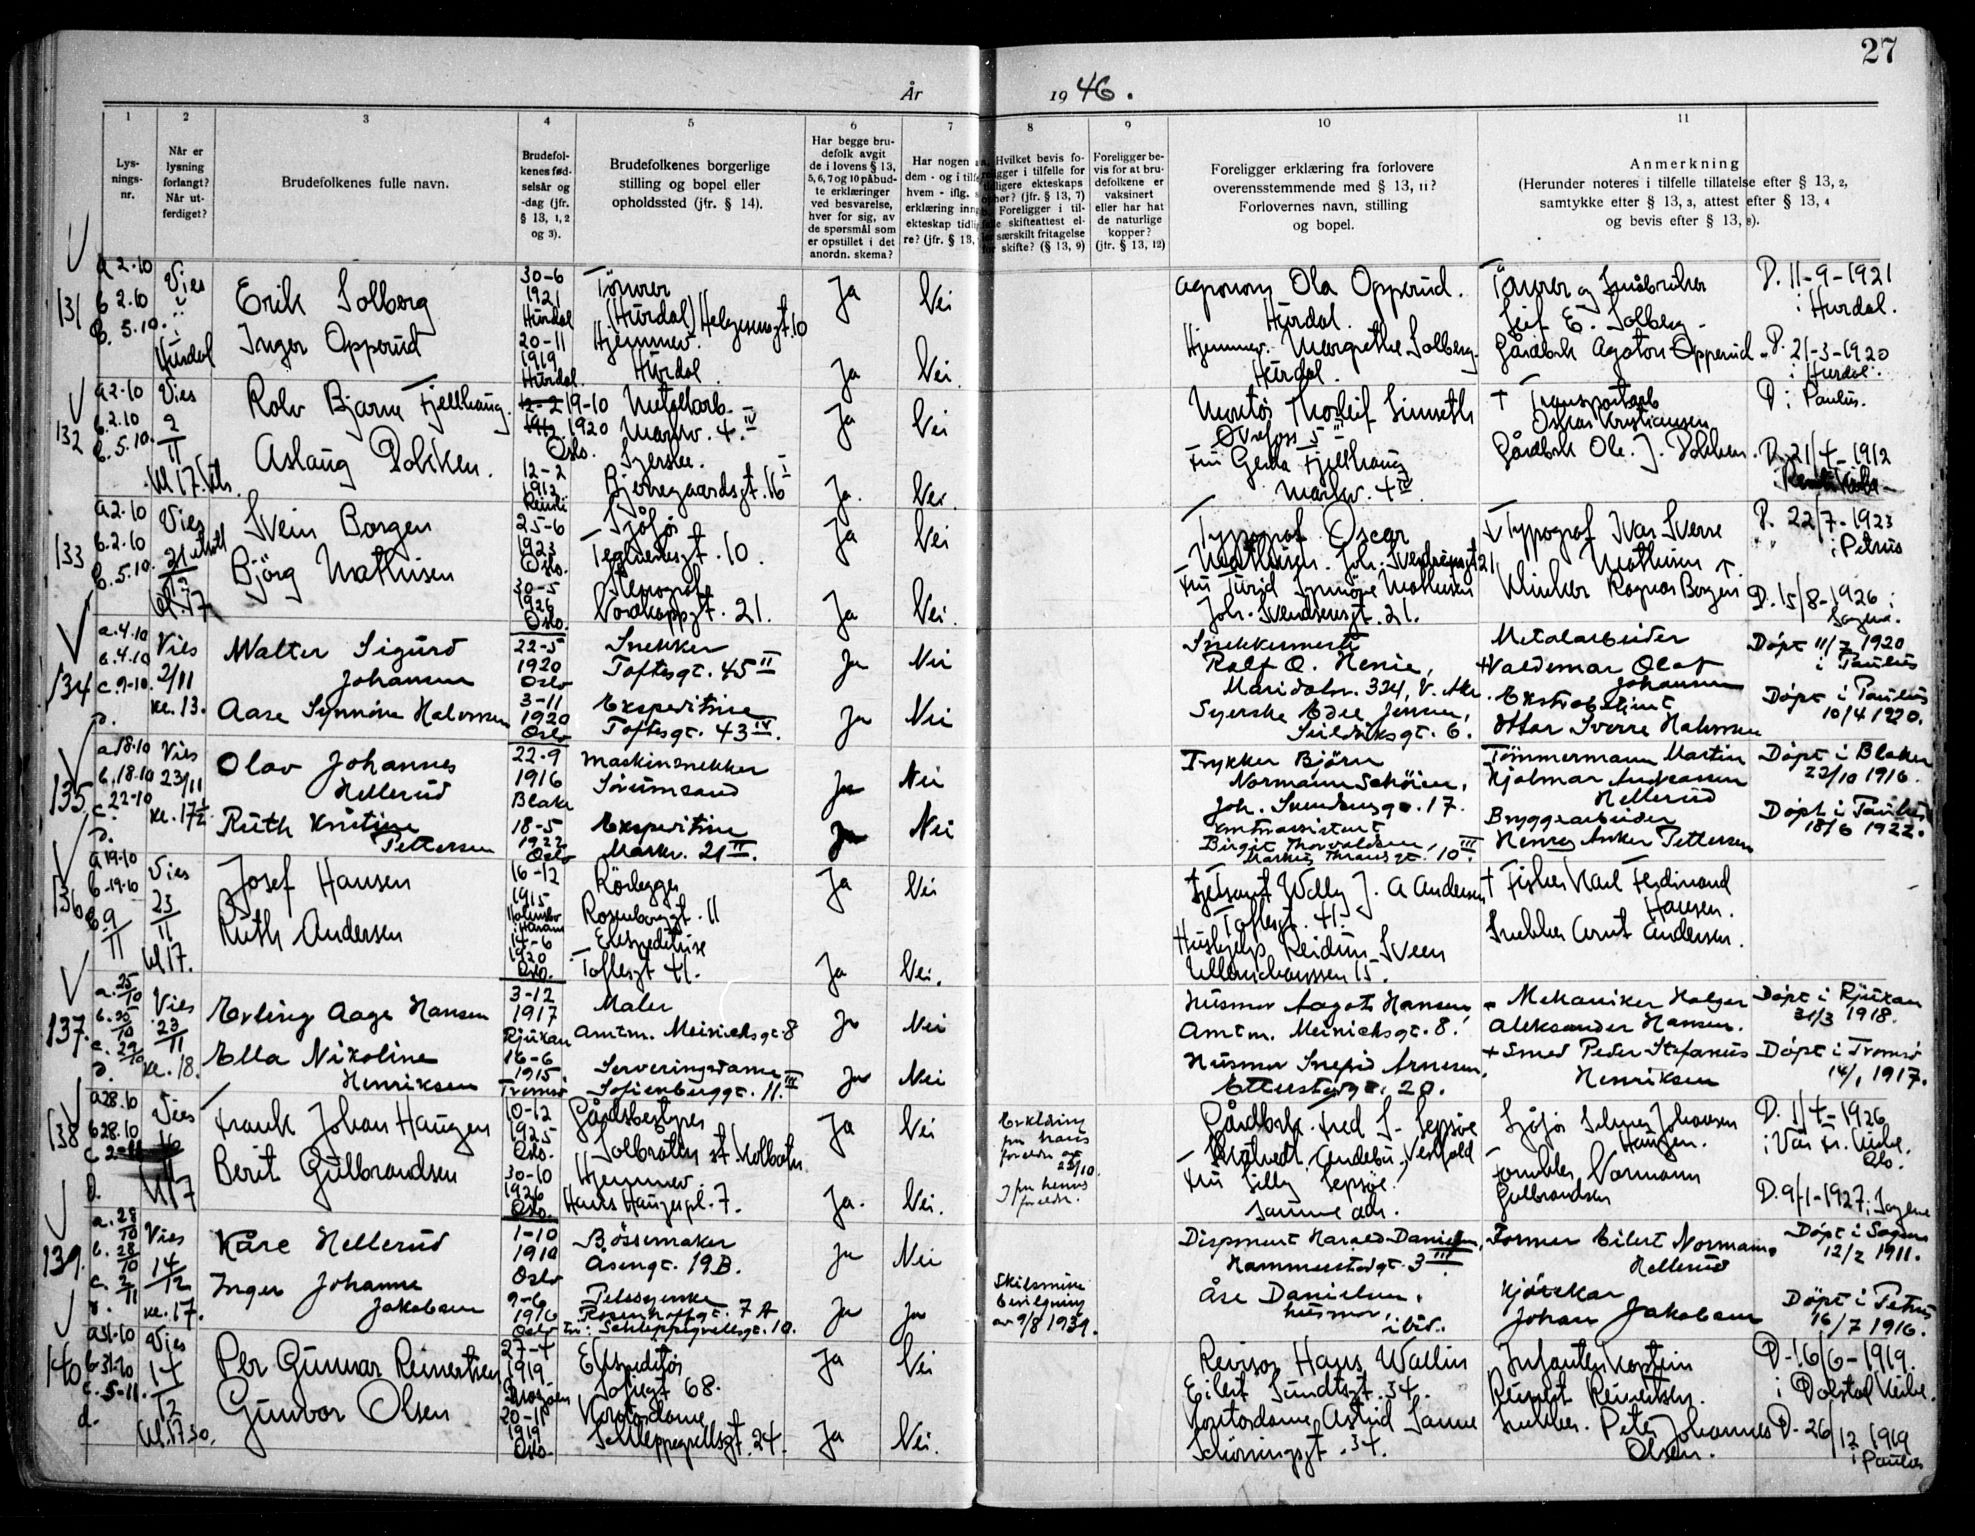 27
År 1946.
1 2 3 4 5 6 7 8 9 10 11
Lys-
nings-
nr.
Når er
lysning
forlangt?
Når ut-
ferdiget?
Brudefolkenes fulle navn.
Brudefol-
kenes fød-
selsår og
-dag (jfr.
§ 13, 1, 2
og 3).
Brudefolkenes borgerlige
stilling og bopel eller
opholdssted (jfr. § 14).
Har begge bru-
defolk avgit
de i lovens § 13,
5, 6, 7 og 10 påbud-
te erklæringer
ved besvarelse,
hver for sig, av
de spørsmål som
er opstillet i det
anordn. skema?
Har nogen a
dem - og i tilfe
hvem - iflg. s
erklæring inng
ekteskap tidli
re? (jfr. § 13,
Hvilket bevis fo-
religger i tilfelle for
tidligere ekteskaps
ophør? (jfr. § 13, 7)
Foreligger i til-
felle skifteattest el-
ler særskilt fritagelse
for skifte? (§ 13, 9)
Foreligger be-
vis for at bru-
defolkene er
vaksinert
eller har hat
de naturlige
kopper?
(jfr. § 13, 12)
Foreligger erklæring fra forlovere
overensstemmende med § 13, 11?
Forlovernes navn, stilling
og bopel.
Anmerkning
(Herunder noteres i tilfelle tillatelse efter § 13, 2,
samtykke efter § 13, 3, attest efter § 13, 4
og bevis efter § 13, 8).
131
a 2.10
b 2.10
c. 5.10.
Vies
i
Hurdal
Erik Solberg
30-6
1921
Hurdal
Tømrer
(Hurdal) Helgesensgt. 10
Ja
Nei
Agronom Ola Opperud.
Hurdal.
Tømrer og Småbruker
Leif E. Solberg.
D. 11-9-1921
i Hurdal.
Inger Opperud
20-11
1919
Hurdal.
Hjemmev.
Hurdal
Ja
Nei.
Hjemmev. Margrethe Solberg.
Hurdal.
Gårdbrk Agaton Opperud
D. 21-3-1920
i Hurdal.
132
a 2.10
b. 2.10
c. 5.10.
Vies
2/11
Kl 17.
Rolv Bjarne Fjellhaug.
19-10
1920
Oslo.
Metallarb.
Markv. 4. IV
Ja
Nei
Montør Thorleif Simseth
† Transportarb
Oskar Kristiansen
D i Paulus.
Aslaug Dokken.
12-2
1912
Syerske.
Bjerregaardsgt. 16 I
Ja.
Nei.
Fru Gerda Fjellhaug
Markv. 4 IV
Gårdbrk Ole. J. Dokken.
D. 21/4-1912
133
a 2.10
b. 2.10
c. 5.10.
Vies
Kl. 17
Svein Borgen
25-6
1923
Oslo.
Sjåfør
Teglverksgt. 10.
Ja
Nei
Typograf Oscar
Mathisen. Joh. Svendsensgt 21
Typograf Ivar Sverre
Mathisen
D. 22/7-1923
i Petrus
Bjørg Mathisen
30-5
1926
Oslo.
Stenograf
Nordkappgt. 21.
Ja
Nei.
Fru Turid Synnøve Mathisen
Joh. Svendsensgt. 21.
Ragnar Borgen
D. 15/8-1926 i
Sagene.
134
a. 4.10
b. 4.10
c. 9-10.
d.
Vies
2/11
kl. 13.
Walter Sigurd
Johansen
22-5
1920
Oslo
Snekker
Toftesgt. 45 II
Ja
Nei
Snekkermester
Rolf O. Henie,
Maridalsv. 324, V. Aker.
Metalarbeider
+Valdemar Olaf
Johansen
Døpt 11/7 1920
i Paulus
Aase Synnøve Halvorsen
3-11
1920
Oslo
Ekspeditrise
Toftesgt. 43 IV.
Ja
Nei
Syerske Edel Jensen,
Seildugsgt. 6.
Ekstrabetjent
Ottar Sverre Halvorsen
Døpt i Paulus
10/4 1920.
135
a. 18.10
b. 18.10
c. 22-10
d.
Vies
23/11
kl. 17½
Olav Johannes
Hellerud
22-9
1916
Blaker
Maskinsnekker
Sørumsand
Ja
Nei
Trykker Bjørn
Normann Schöien,
Joh. Svendsensgt. 17.
Tømmermann Martin
Hjalmar Andreassen
Hellerud
Døpt i Blaker
22/10 1916.
Ruth Kristine
Pettersen
18-5
1922
Oslo
Ekspeditrise
Markv. 21 II.
Ja
Nei
Kontorassistent
Birgit Thorvaldsen,
Markus Thranesgt. 10 III.
Bryggearbeider
Henry Anker Pettersen
Døpt i Paulus
18/6 1922.
136
a 19.10
b. 19.10
c. 9/11
Vies
23/11
kl 17.
Josef Hansen
16-12
1915
Rørlegger
Rosenborggt. 11
Ja
Nei
Willy J. A Andersen
Toftesgt. 41.
† Fisker Karl Ferdinand
Hansen.
Ruth Andersen
14-6
1920
Oslo.
Ekspeditrise
Toftesgt 41.
Ja
Nei.
Hushjelp Reidun Sveen
Ullevichaussen 15.
Snekker Arnt Andersen.
137.
a. 25/10
b. 25/10
c. 29/10
d.
Vies
23/11
kl. 18.
Erling Aage Hansen
3-12
1917
Rjukan
Maler
Amtm. Meinichsgt. 8
Ja
Nei
Husmor Aagot Hansen
Amtm. Meinichsgt. 8.
Mekaniker Holger
Aleksander Hansen.
Døpt i Rjukan
31/3 1918.
Ella Nikoline
Henriksen
16-6
1915
Tromsø
Serveringsdame
Sofienberggt. 11. III
Ja
Nei
Husmor Ingrid Arnesen,
Etterstadgt. 20.
+ Smed Peder Stefanus
Henriksen
Døpt i Tromsø
14/1 1917.
138
a 28.10
b 28.10
c
d.
Vies
Kl 17
Frank Johan Haugen
10-12
1925
Oslo.
Gårdsbestyrer
Solbråten st. Kolbotn
Ja
Nei
Erklæring
fra hans
foreldre av
22/10.
Gårdbrk. Fred S. Sepsøe
Andebu, Vestfold
Sjåfør Johansen
Haugen.
D. 1/4-1926
i Vår Fr. kirke.
Oslo.
Berit Gulbrandsen
30-10
1926
Oslo.
Hjemmev.
Hans Haugespl. 7.
Ja.
Nei.
fra hennes
foreldre.
Fru Lilly Sepsøe.
samme adr.
Normann
Gulbrandsen
D. 9/1-1927 i Sagene
139.
a. 28/10
b. 28/10
c. 2/11
d.
Vies
14/12
kl. 17.
Kåre Hellerud
1-10
1910
Oslo
Børsemaker
Åsengt. 19B.
Ja
Nei
Disponent Harald Danielsen,
Hammerstadgt. 3 III.
Former Eilert Normann
Hellerud
Døpt i Sagene
12/2 1911.
Inger Johanne
Jakobsen
9-6
1916
Oslo
Rosenhoffgt. 7 A
Schleppegrellsgt. 10.
Ja
Ja
Skilsmisse
bevilgning
av 9/8 1939.
Åse Danielsen,
husmor,
ibid.
Kjørekar
Johan Jakobsen
Døpt i Petrus
16/7 1916.
140
a 31.10
b 31.10
c. 5-11.
d.
Vies
14/12
Kl. 17.30.
Per Gunnar Reinertsen
27-4
1919
Mosjøen
Ekspeditør
Sofiegt 68.
Ja
Nei
Revisor Hans Wallin
Eilert Sundtsgt. 34.
Reinert Reinertsen.
D. 16/6-1919.
i Dolstad Kirke.
Gunvor Olsen
20-11
1919
Oslo.
Kontordame
Schleppegrellsgt. 24.
Ja
Nei.
Kontordame Astrid Sanne
Schønningsgt. 34.
Snekker. Peter Johannes
Olsen.
D. 26/12 1919
i Paulus